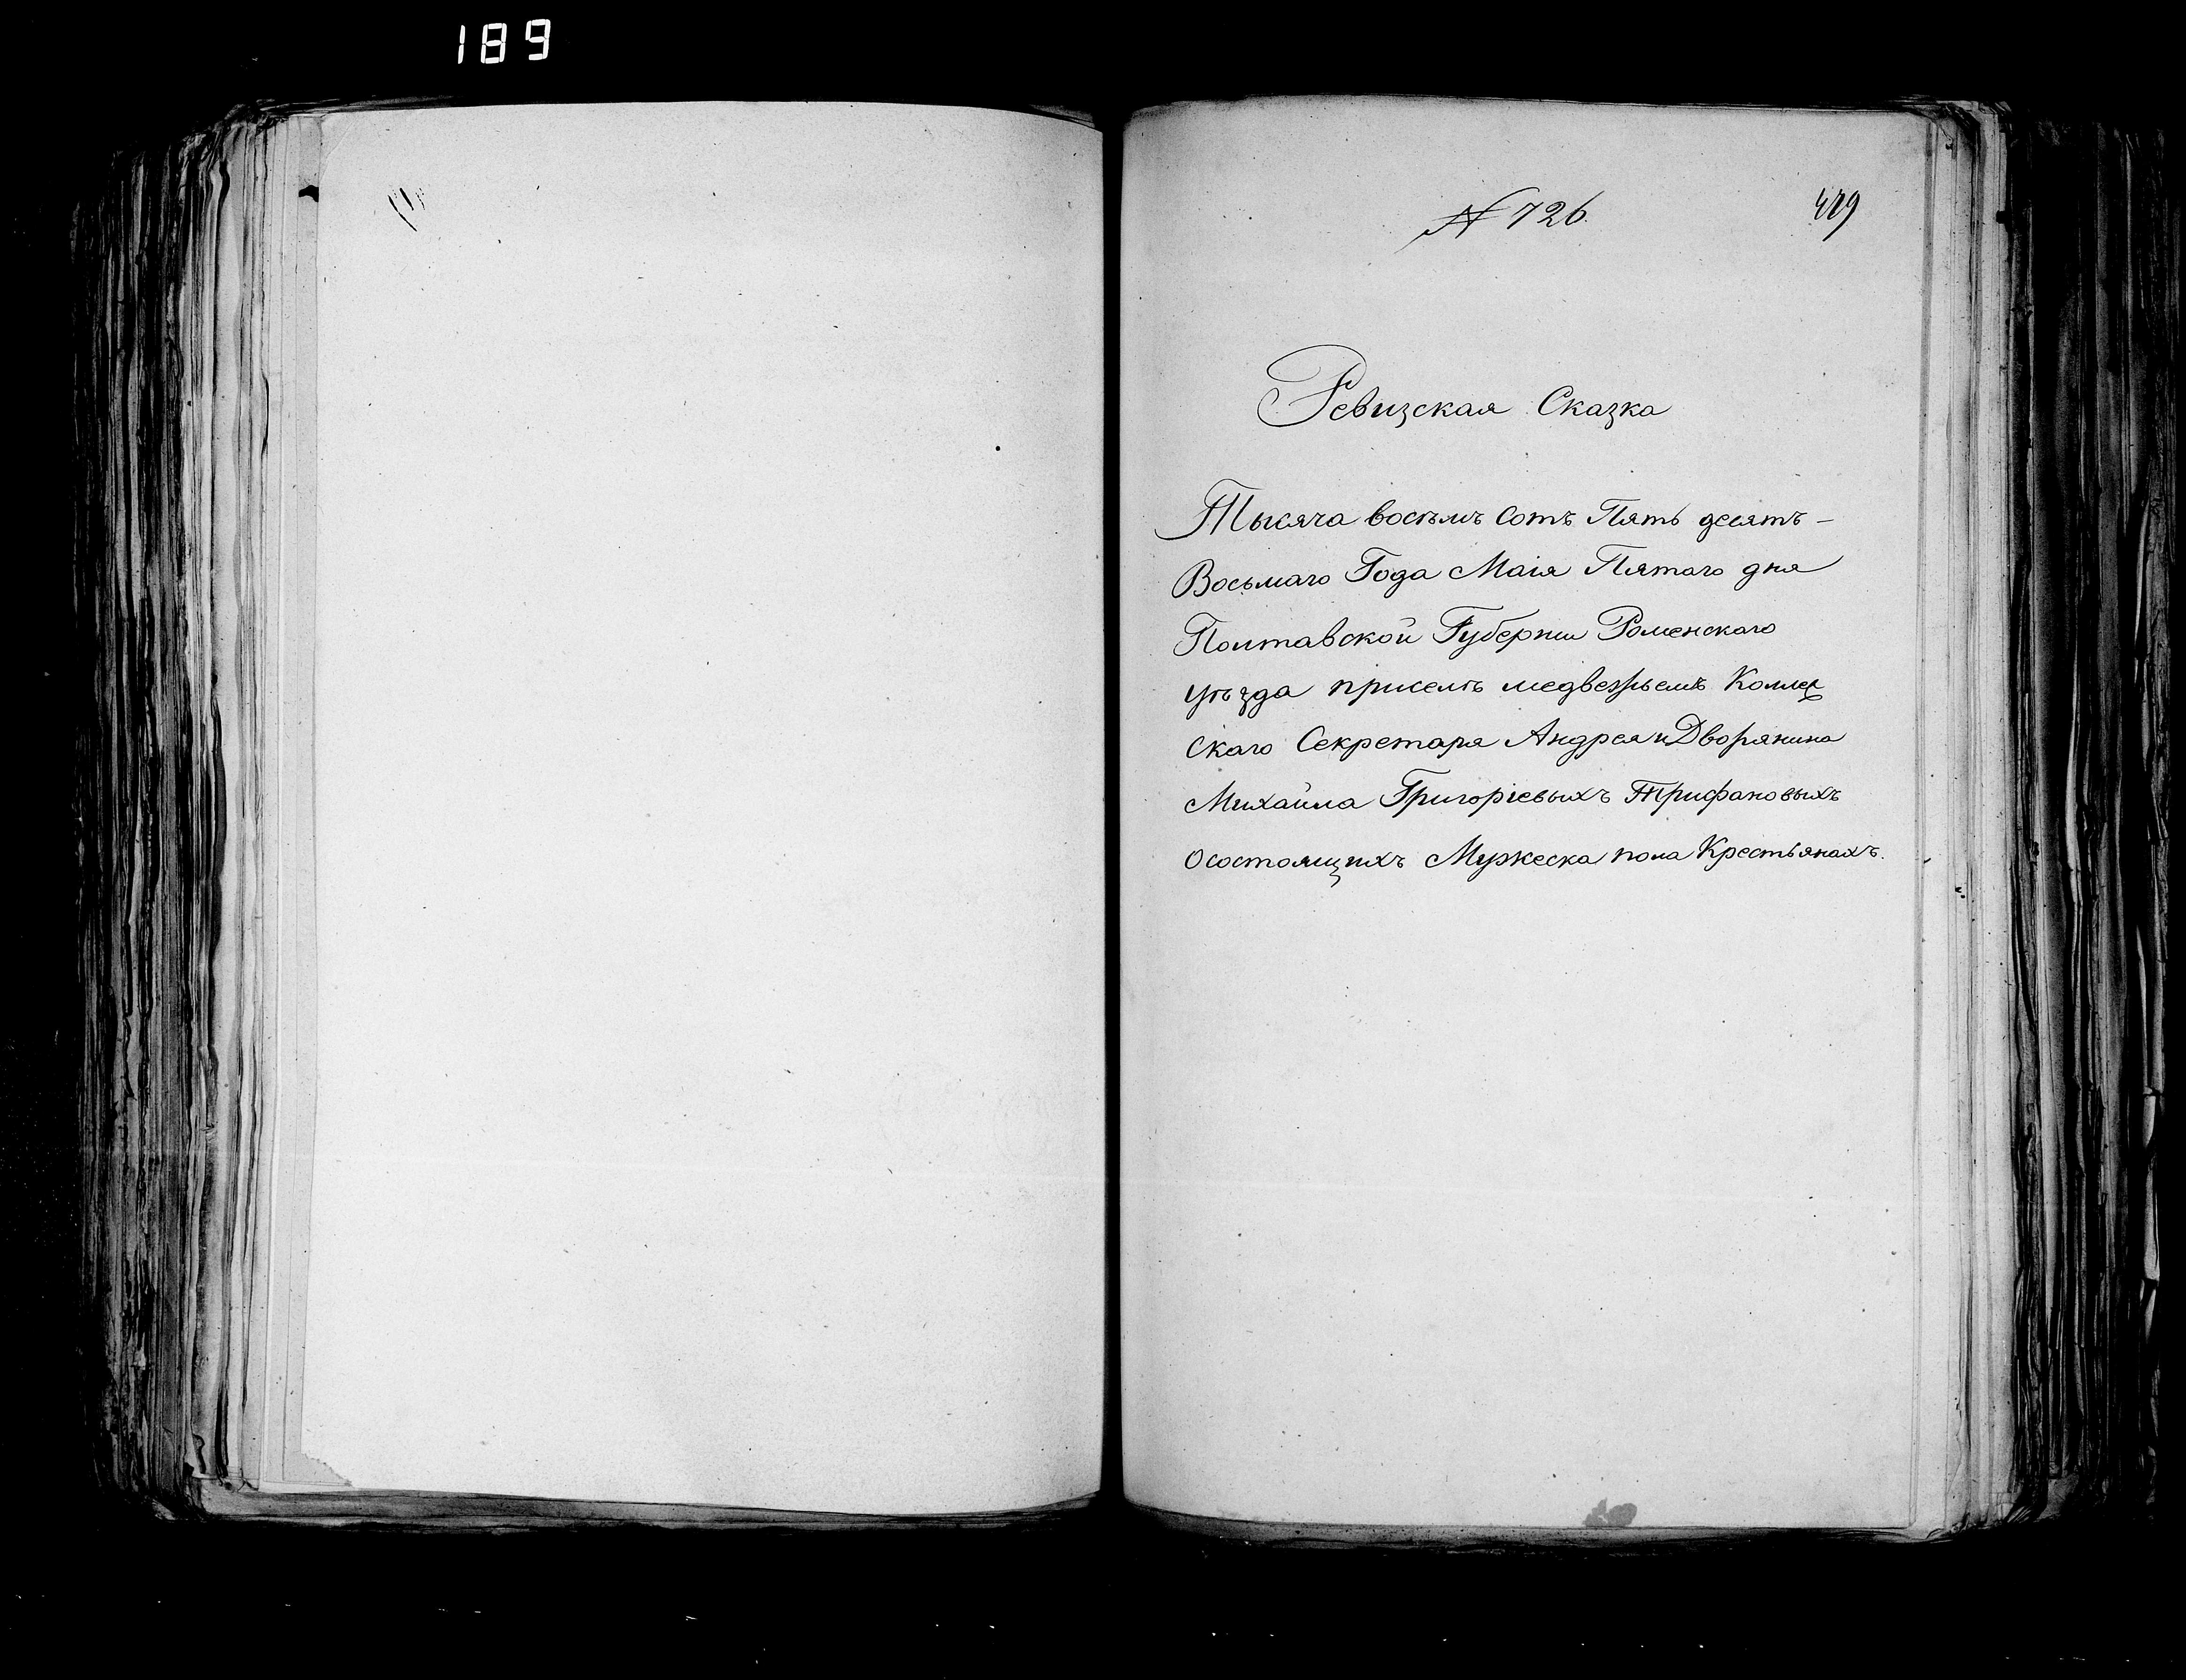 189
№ 726.
Ревизская Сказка
Тысяча восемъ Сотъ Пять десятъ –
Восьмаго Года Маія Пятаго дня
Полтавской Губернии Роменскаго
уѣзда приселѣ медвежьемъ Коллеж
Скаго Секретаря Андрея и Дворянина
Михайла Григоріевыхъ Трифановыхъ
О состоящихъ Мужеска пола Крестьянахъ.